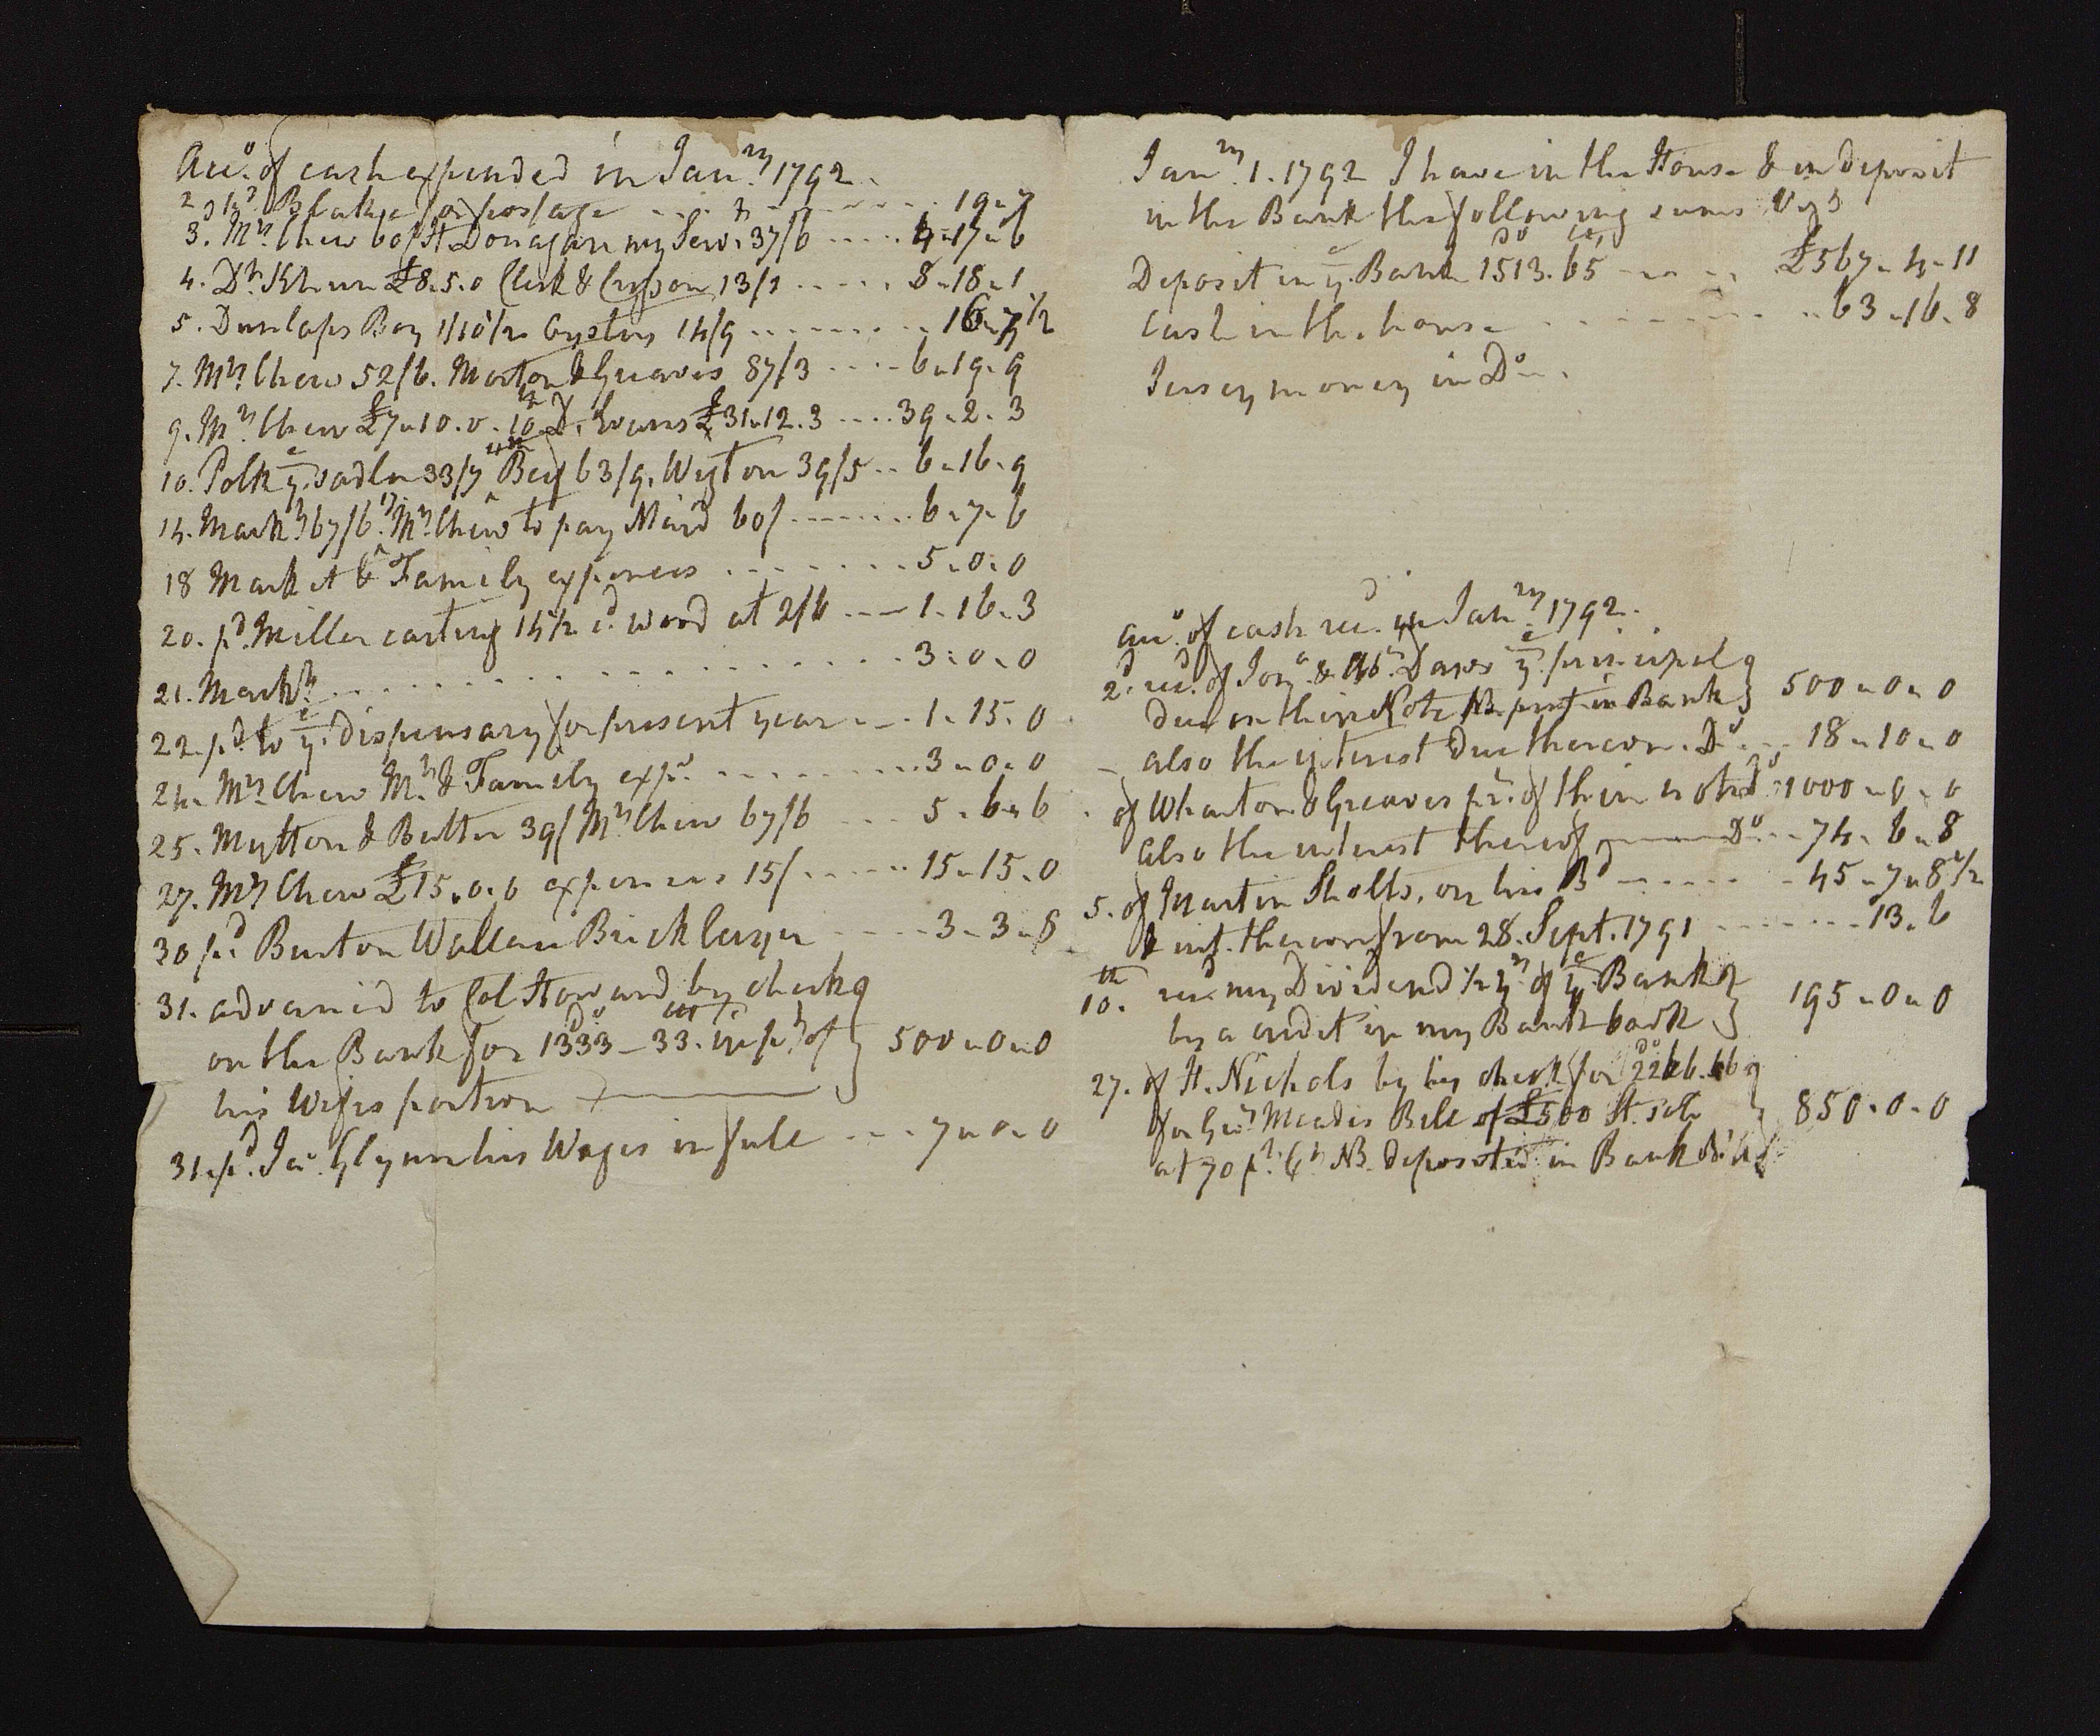 Acco. of cash expended in Janry. 1792.
2d pd Blake for postage ..... 19-7
3. Mrs. Chew 60/ H. Donagan my Serv. 37/6 ..... 4-17-6
4. Dr. Khun £8.5.0 Clerk & Crysson 13/1 ..... 8-18-1
5. Dunlaps Boy 1/10½ Oysters 14/9 ........ 16-7½
7. Mrs. Chew 52/6. Morton & Greaves 87/3 .... 6-19-9
9. Mrs. Chew £7-10.0-10th D. Evans £31.12.3 .... 39-2-3
10. Polk ye. sadler 33/7 Beef 63/9. Weston 39/5 .. 6-16-9
14. Markt. 67/6 Mrs. Chew to pay Maid 60/ ........ 6-7-6
18 Market & Family expences ....... 5.0.0
20. pd. Miller carting 14½ c. wood at 2/6 ---- 1-16-3
21. Markt. .............. 3.0.0
22. pd. to ye. dispensary for present year ... 1-15-0
24. Mrs. Chew Mt. & Family exps. ......... 3-0-0
25. Mytton & Butter 39/ Mrs Chew 67/6 ... 5-6-6
27. Mrs Chew £15.0.0 expences 15/ ...... 15-15.0
30 pd. Burton Wallace Bricklayer ..... 3-3-8
31. advanced to Col Howard by check
on the Bank for 1333 do - 33. cts in pt. of } 500-0-0
his Wifes portion
31. pd. Jas. Glynn his Wages in full .... 7-0-0
Janry. 1. 1792 I have in the House & in deposit
in the Bank the following sums Vizt
Deposit in ye. Bank 1513 do. 65 cts ..... £567-4-11
Cash in the house ........ 63-16-8
Jersey money in Do.
Acco. of cash recd. in Janry. 1792.
2d. recd. of & ye. principal
due on their Note NB. put in Bank } 500-0-0
also the interest due thereon. Do. ... 18-10-0
of Wharton & Greaves pr. of their note Do. 1000-0-0
also the interest thereof ---- Do. ... 74-6-8
5. of Martin Sholts, on his Bd ...... 45-7-8½
& int. thereon from 28. Sept. 1791 ....... 13.6
10.th recd. my Dividend ½ yr of ye. Bank
by a credit in my Bank book } 195-0-0
27. of H. Nichols by his check for 2266 do. 66
for Geo. Meades Bill of £500 St. sold } 850-0-0
at 70 pr. Ct. NB. deposited in Bank